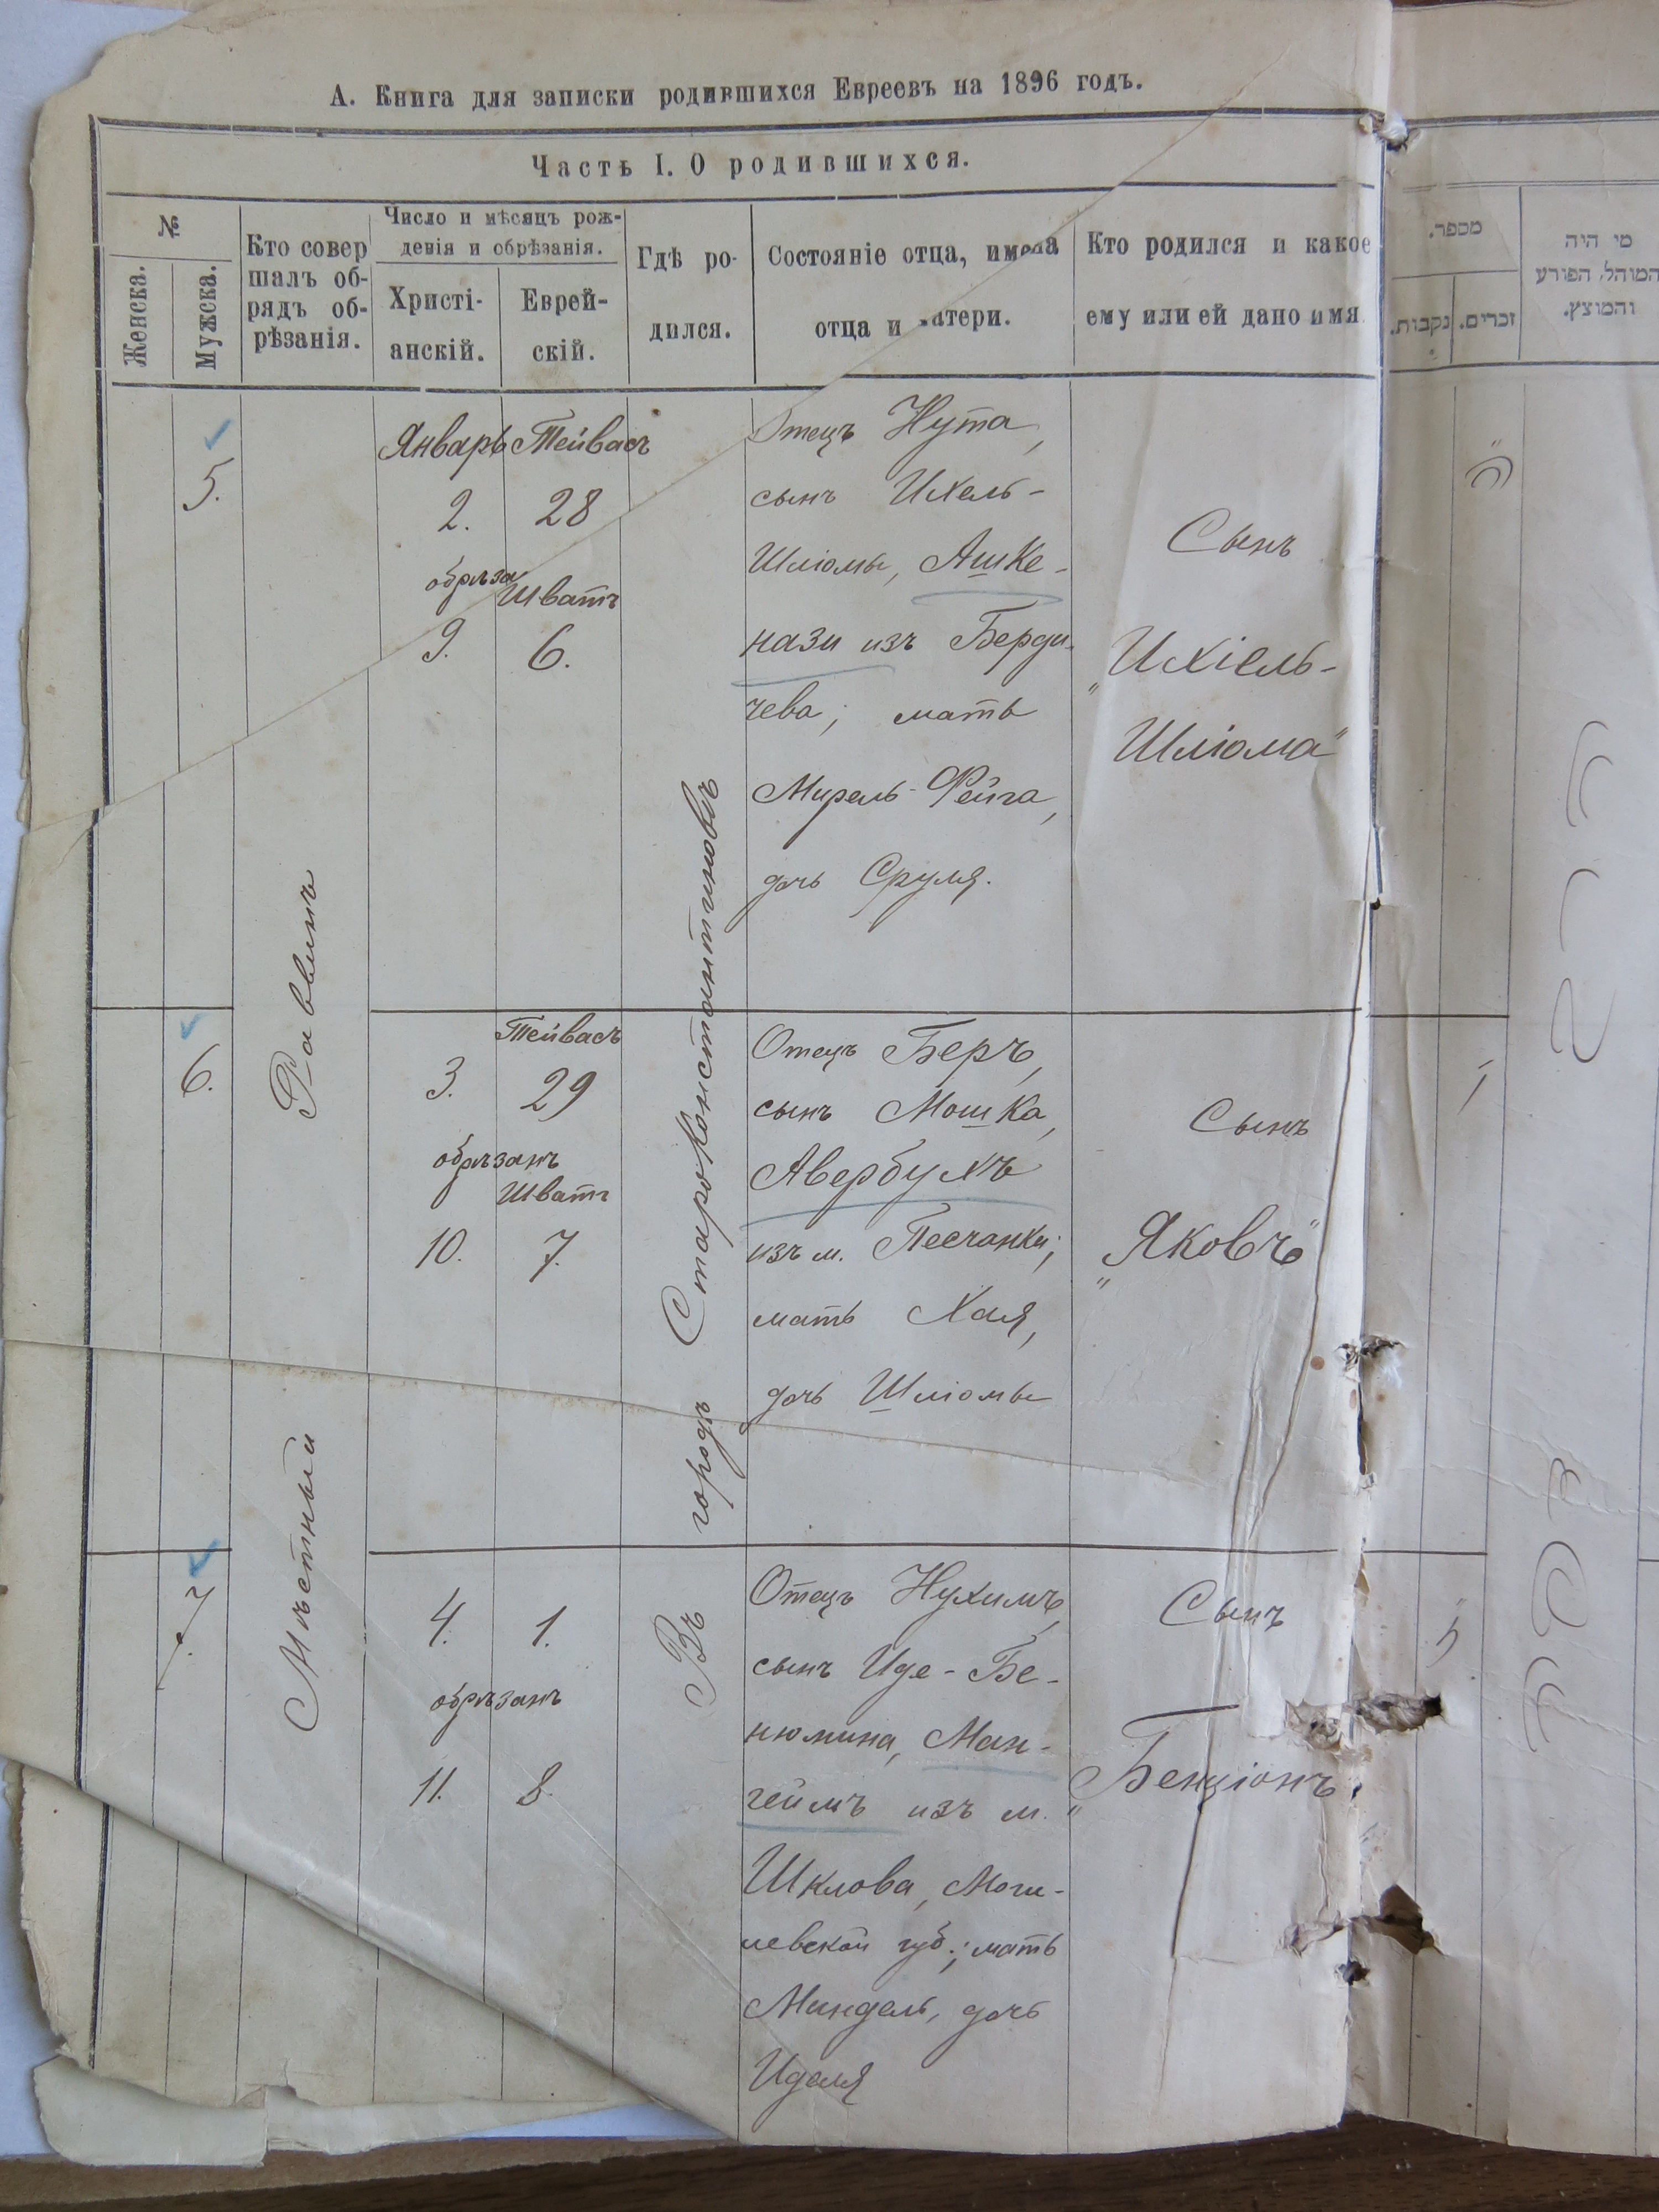 А. Книга для записки родившихся Евреевъ на 1896 годъ.
Часть I. О родившихся.
№
Женска.
Мужска.
Кто совер
шалъ об-
рядъ об-
рѣзанія.
Число и мѣсяцъ рож-
денія и обрѣзанія.
Христі-
анскій.
Еврей-
скій.
Гдѣ ро-
дился.
Состояніе отца, имена
отца и матери.
Кто родился и какое
ему или ей дано имя
מספר.
נקבות.
זכרים.
מי היה
המוהל, הפורע
והמוצץ.
Мѣстный Раввинъ
Въ городѣ Староконстантиновѣ
5.
Январь Тейвасъ
2. 28
обрѣза
Шватъ
9. 6.
Отецъ Нута,
сынъ Ихель-
Шлiомы, Ашке-
нази изъ Берди-
чева; мать
Мирель-Фейга,
дочь Сруля.
Сынъ
„Ихіель-
Шлiома"
ה
6.
Тейвасъ
3. 29
обрѣзанъ
Шватъ
10. 7.
Отецъ Беръ,
сынъ Мошка,
Авербухъ
изъ м. Песчанки;
мать Хая,
дочь Шлiомы
Сынъ
„Яковъ"
ו
7.
4. 1.
обрѣзанъ
11. 8.
Отецъ Нухимъ,
сынъ Иде-Бе-
нюмина, Ман-
геймъ изъ м.
Шклова, Моги-
левской губ.; мать
Миндель, дочь
Иделя
Сынъ
„Бенціонъ